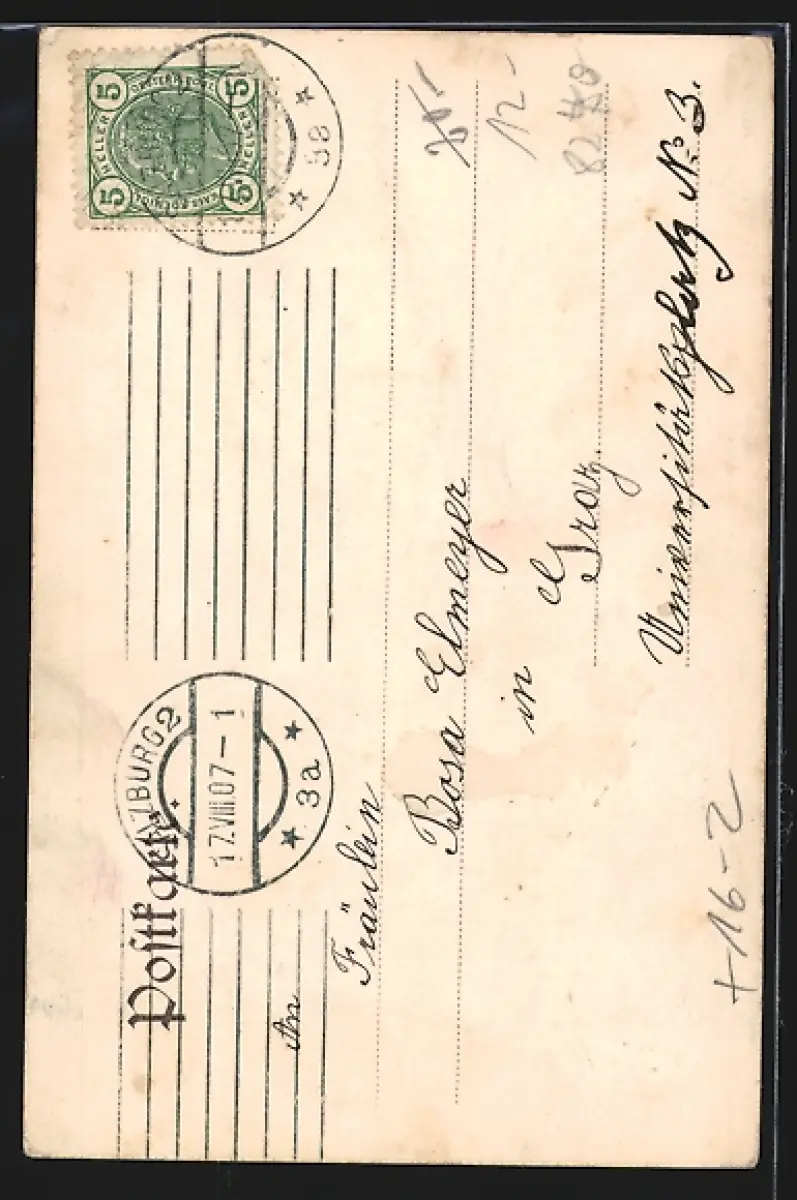 Postkarte.
An
Fräulein
Rosa Elmeyer
in Graz
Universitätsplatz No. 3.
SALZBURG 2
17.VIII.07–1
* 3a *
5 5
5 5
HELLER HELLER
* 3a *
12-
+16-2